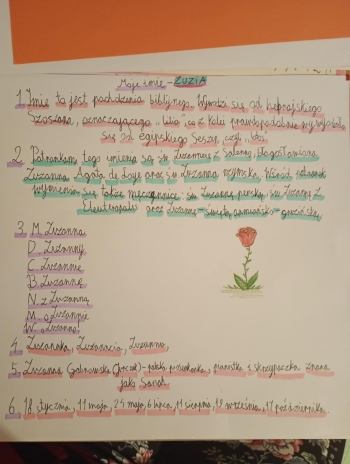 Moje imię - ZUZIA
1. Imię to jest pochodzenia biblijnego. Wywodzi się od hebrajskiego
Szoszana, oznaczającego „lilia", co z kolei prawdopodobnie wywodziło
się od egipskiego Seszen, czyli „lotos
2. Patronkami tego imienia są św. Zuzanna z Salerno, błogosławiona
Zuzanna Agata de Loye oraz św. Zuzanna rzymska. Wśród patronek
wymienia się także męczennice: św. Zuzannę perską, św. Zuzannę z
Eleutropolis oraz Zuzannę - świętą ormiańsko - gruzińską
3. M. Zuzanna
D. Zuzanny
C. Zuzannie
B. Zuzannę
N. z Zuzanną
M. o Zuzannie
W. o Zuzanno!
4. Zuzanka, Zuzannia, Zuzanna,
5. Zuzanna Galinowska - polska piosenkarka, pianistka i skrzypaczka znana
jako Sanah.
6. 18 stycznia, 11 maja, 24 maja, 6 lipca, 11 sierpnia, 19 września, 17 października.